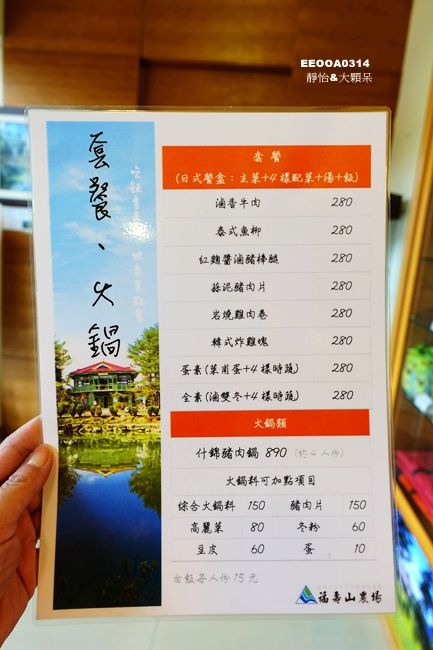 EEOOA0314
靜怡&大顆呆
套餐、火鍋
套餐
(日式餐盒：主菜+4樣配菜+湯+飯)
滷香牛肉 280
泰式魚柳 280
紅麴醬滷豬棒腿 280
蒜泥豬肉片 280
岩燒雞肉卷 280
韓式炸雞塊 280
蛋素(菜甫蛋+4樣時蔬) 280
全素(滷雙冬+4樣時蔬) 280
火鍋類
什錦豬肉鍋 890 (約4人份)
火鍋料可加點項目
綜合火鍋料 150 豬肉片 150
高麗菜 80 冬粉 60
豆皮 60 蛋 10
白飯每人份15元
福壽山農場